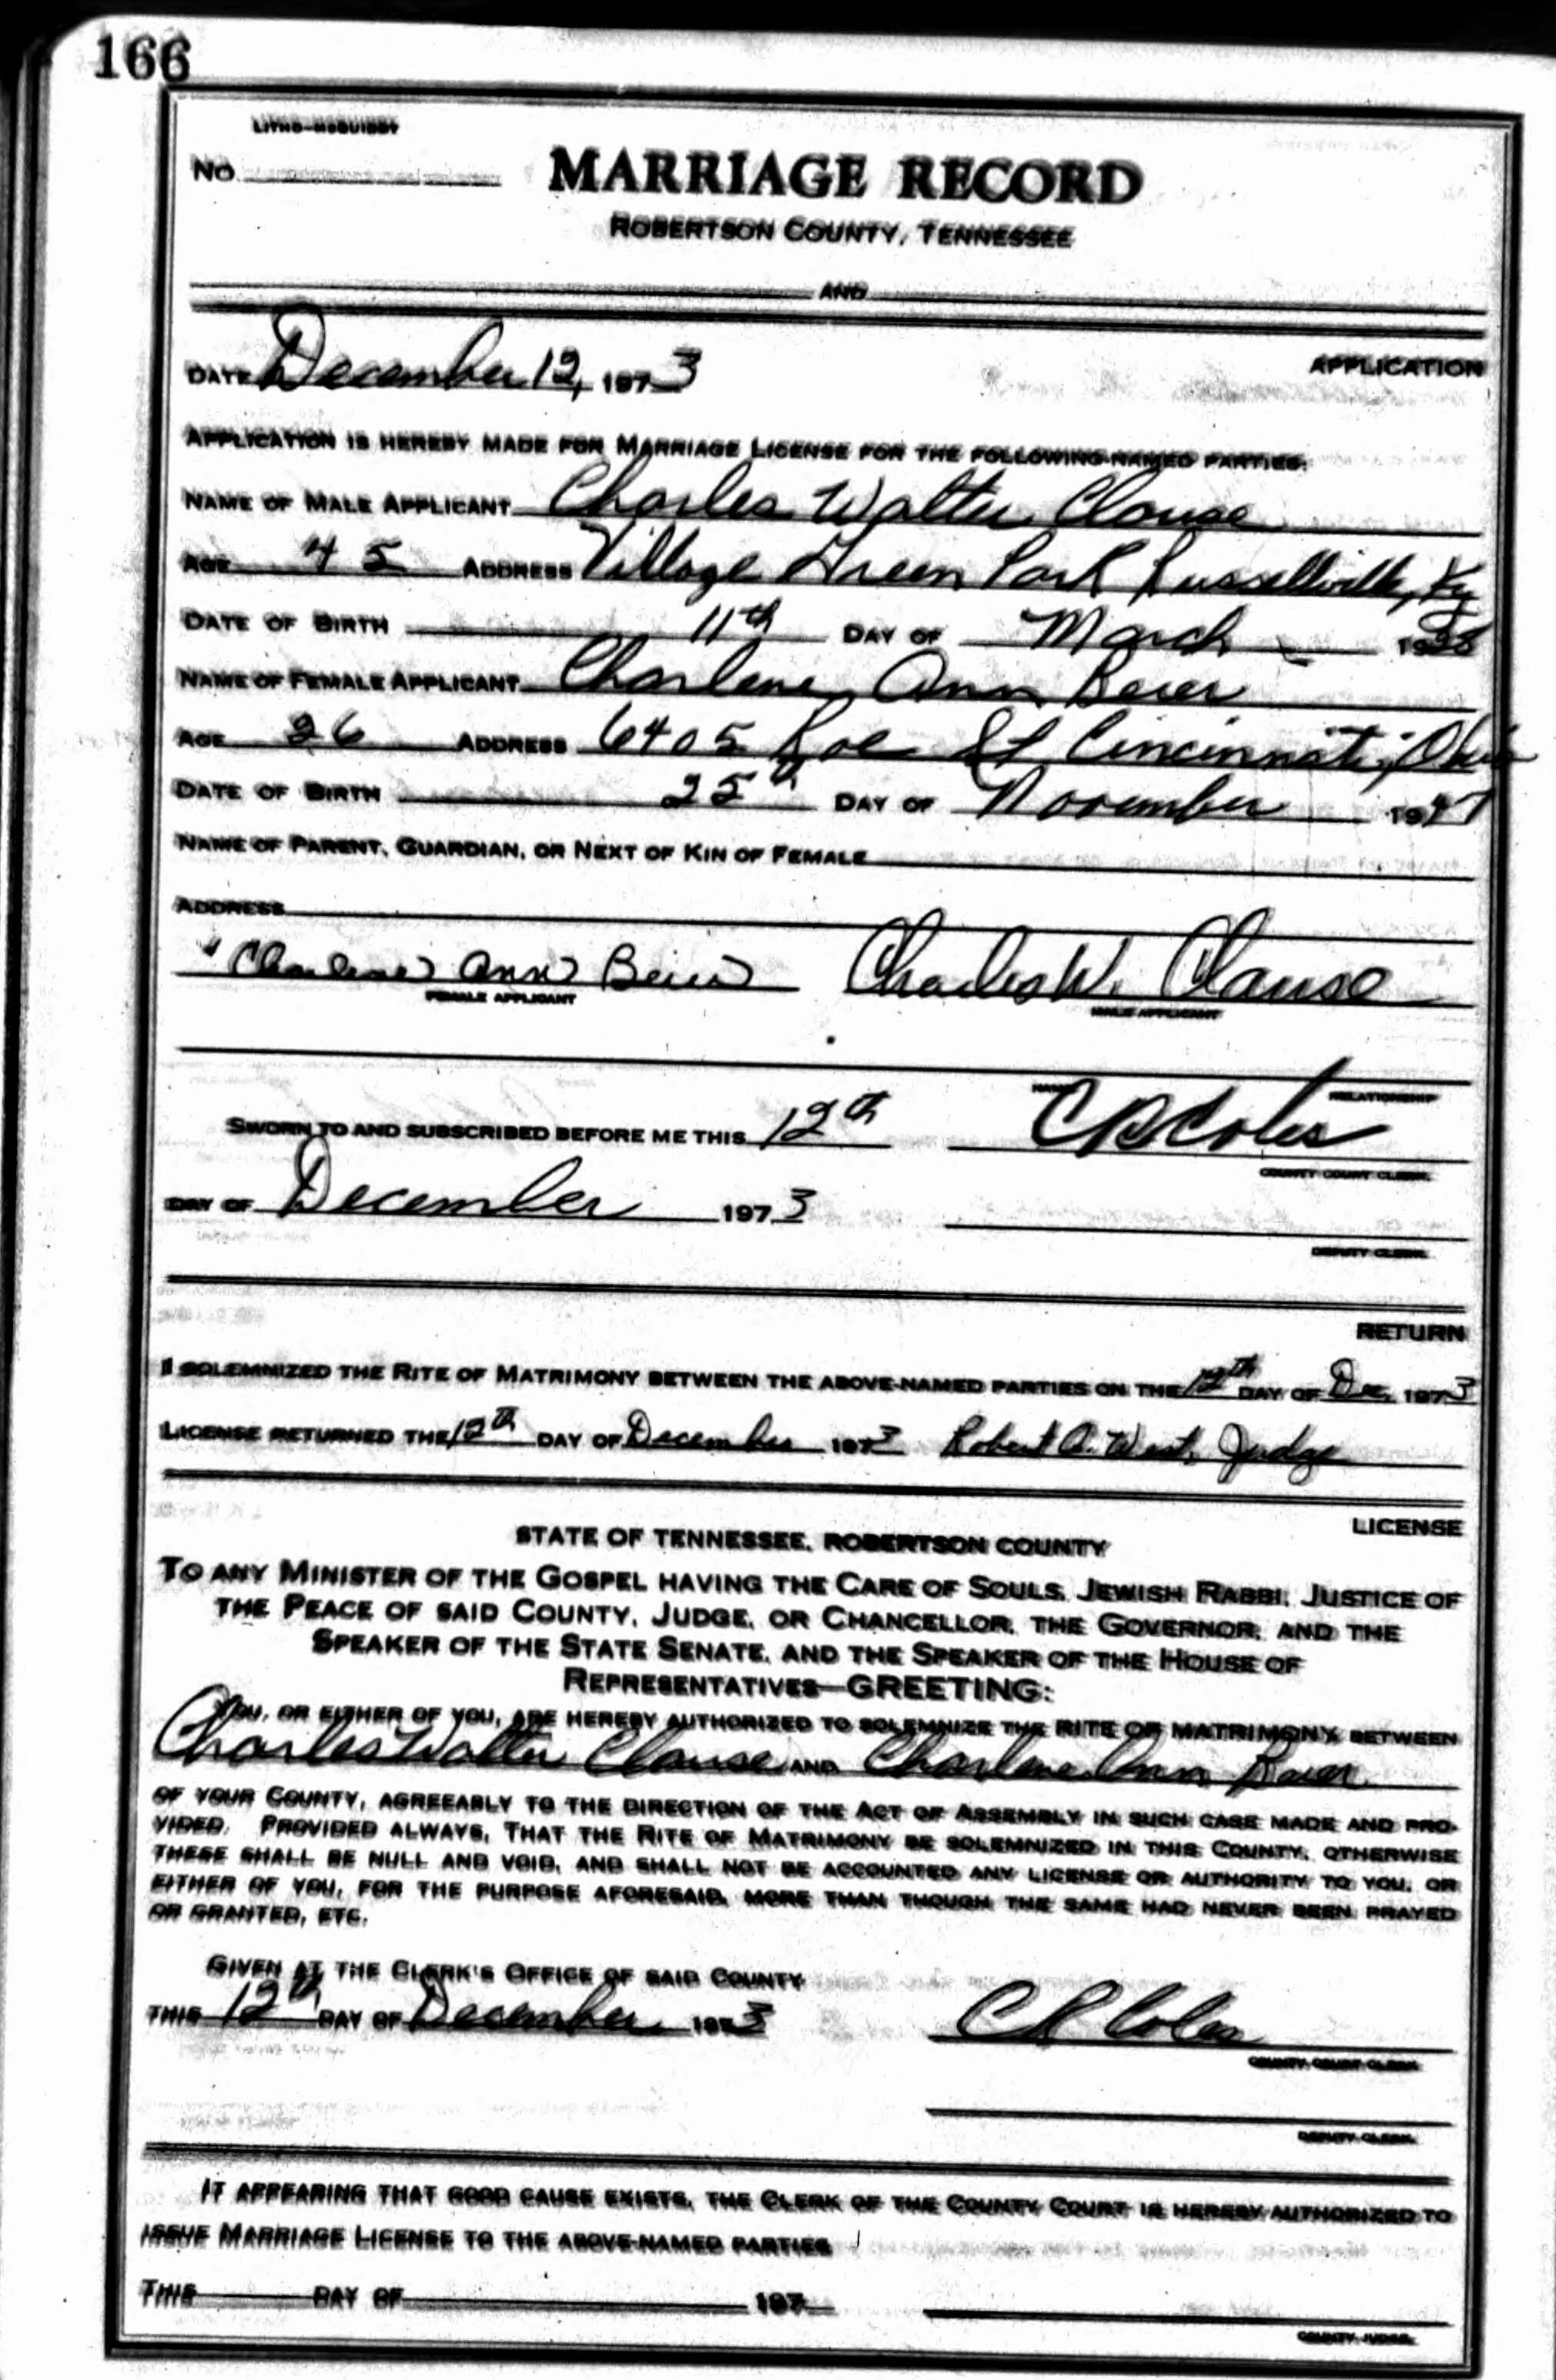 166
LITHO-MCQUIDDY
No
MARRIAGE RECORD
ROBERTSON COUNTY, TENNESSEE
AND
DATE December 12, 1973
APPLICATION
APPLICATION IS HEREBY MADE FOR MARRIAGE LICENSE FOR THE FOLLOWING-NAMED PARTIES:
NAME OF MALE APPLICANT Charles Walter Clause
AGE 45 ADDRESS Village Green Park Russellville, Ky
DATE OF BIRTH 11th DAY OF March 1928
NAME OF FEMALE APPLICANT Charlene Ann Beier
AGE 26 ADDRESS 6405 Roe St Cincinnati, Ohio
DATE OF BIRTH 25th DAY OF November 1947
NAME OF PARENT, GUARDIAN, OR NEXT OF KIN OF FEMALE
ADDRESS
Charlene Ann Beier Charles W. Clause
FEMALE APPLICANT MALE APPLICANT
NAME RELATIONSHIP
SWORN TO AND SUBSCRIBED BEFORE ME THIS 12th
COUNTY COURT CLERK
DAY OF December 1973
DEPUTY CLERK
RETURN
I SOLEMNIZED THE RITE OF MATRIMONY BETWEEN THE ABOVE-NAMED PARTIES ON THE 12th DAY OF Dec, 1973
LICENSE RETURNED THE 12th DAY OF December 1973 Robert A. West, Judge
LICENSE
STATE OF TENNESSEE, ROBERTSON COUNTY
TO ANY MINISTER OF THE GOSPEL HAVING THE CARE OF SOULS, JEWISH RABBI, JUSTICE OF
THE PEACE OF SAID COUNTY, JUDGE, OR CHANCELLOR, THE GOVERNOR, AND THE
SPEAKER OF THE STATE SENATE, AND THE SPEAKER OF THE HOUSE OF
REPRESENTATIVES—GREETING:
YOU, OR EITHER OF YOU, ARE HEREBY AUTHORIZED TO SOLEMNIZE THE RITE OF MATRIMONY BETWEEN
Charles Walter Clause AND Charlene Ann Beier
OF YOUR COUNTY, AGREEABLY TO THE DIRECTION OF THE ACT OF ASSEMBLY IN SUCH CASE MADE AND PRO-
VIDED. PROVIDED ALWAYS, THAT THE RITE OF MATRIMONY BE SOLEMNIZED IN THIS COUNTY, OTHERWISE
THESE SHALL BE NULL AND VOID, AND SHALL NOT BE ACCOUNTED ANY LICENSE OR AUTHORITY TO YOU, OR
EITHER OF YOU, FOR THE PURPOSE AFORESAID, MORE THAN THOUGH THE SAME HAD NEVER BEEN PRAYED
OR GRANTED, ETC.
GIVEN AT THE CLERK'S OFFICE OF SAID COUNTY
THIS 12th DAY OF December, 1973
COUNTY COURT CLERK
DEPUTY CLERK
IT APPEARING THAT GOOD CAUSE EXISTS, THE CLERK OF THE COUNTY COURT IS HEREBY AUTHORIZED TO
ISSUE MARRIAGE LICENSE TO THE ABOVE-NAMED PARTIES
THIS DAY OF 197
COUNTY JUDGE